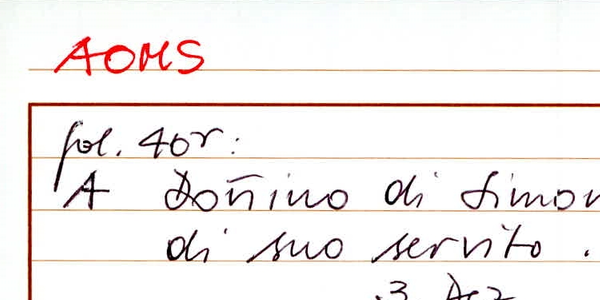 AOMS
fol. 40r:
A Doñino di Simon
di suo servito.
.3 Dez